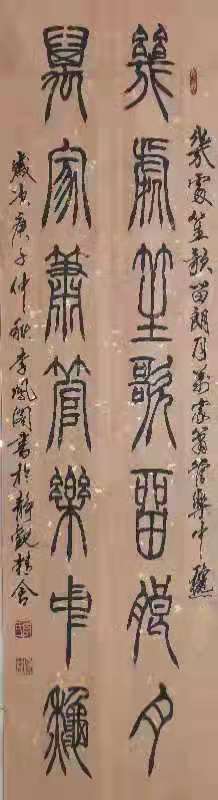 幾處笙歌留朗月萬家簫管樂中龝
幾處笙歌留朗月
萬家簫管樂中龝
歲次庚子仲秋李鳳閣書於靜觀精舍